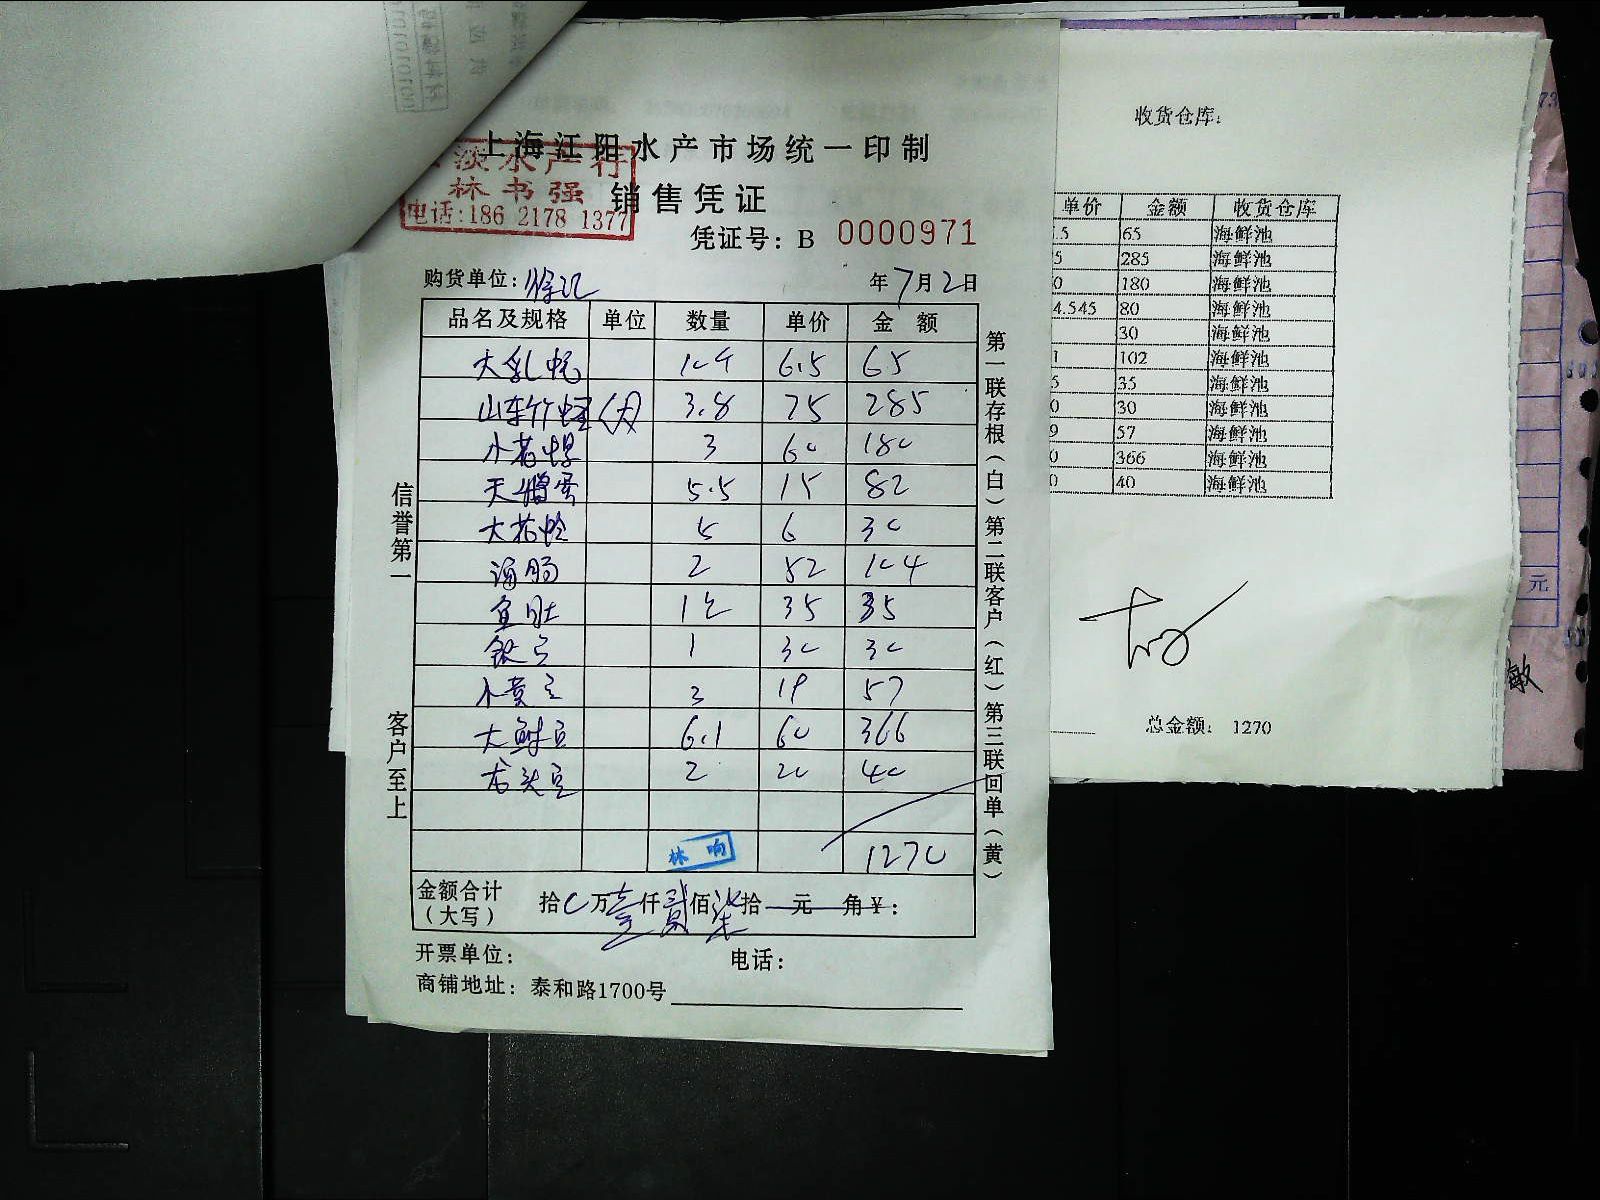 上海江阳水产市场统一印制
淡水产行
林书强
电话:186 2178 1377
销售凭证
凭证号: B 0000971
购货单位: 徐记 年7月2日
品名及规格 单位 数量 单价 金额
大 104 6.5 65
山东竹蛏(大) 3.8 75 285
小 3 60 180
天鹅蛋 5.5 15 82
大花蛤 5 6 30
海肠 2 52 104
鱼肚 1包 35 35
1 30 30
小黄 3 19 57
大 6.1 60 366
龙头 2 20 40
林响
1270
金额合计(大写) 拾0万壹仟贰佰柒拾 元 角¥:
开票单位: 电话:
商铺地址: 泰和路1700号
信誉第一
客户至上
第一联存根(白)第二联客户(红)第三联回单(黄)
收货仓库:
单价 金额 收货仓库
.5 65 海鲜池
5 285 海鲜池
0 180 海鲜池
4.545 80 海鲜池
30 海鲜池
1 102 海鲜池
5 35 海鲜池
0 30 海鲜池
9 57 海鲜池
0 366 海鲜池
0 40 海鲜池
总金额: 1270
73
元
敏